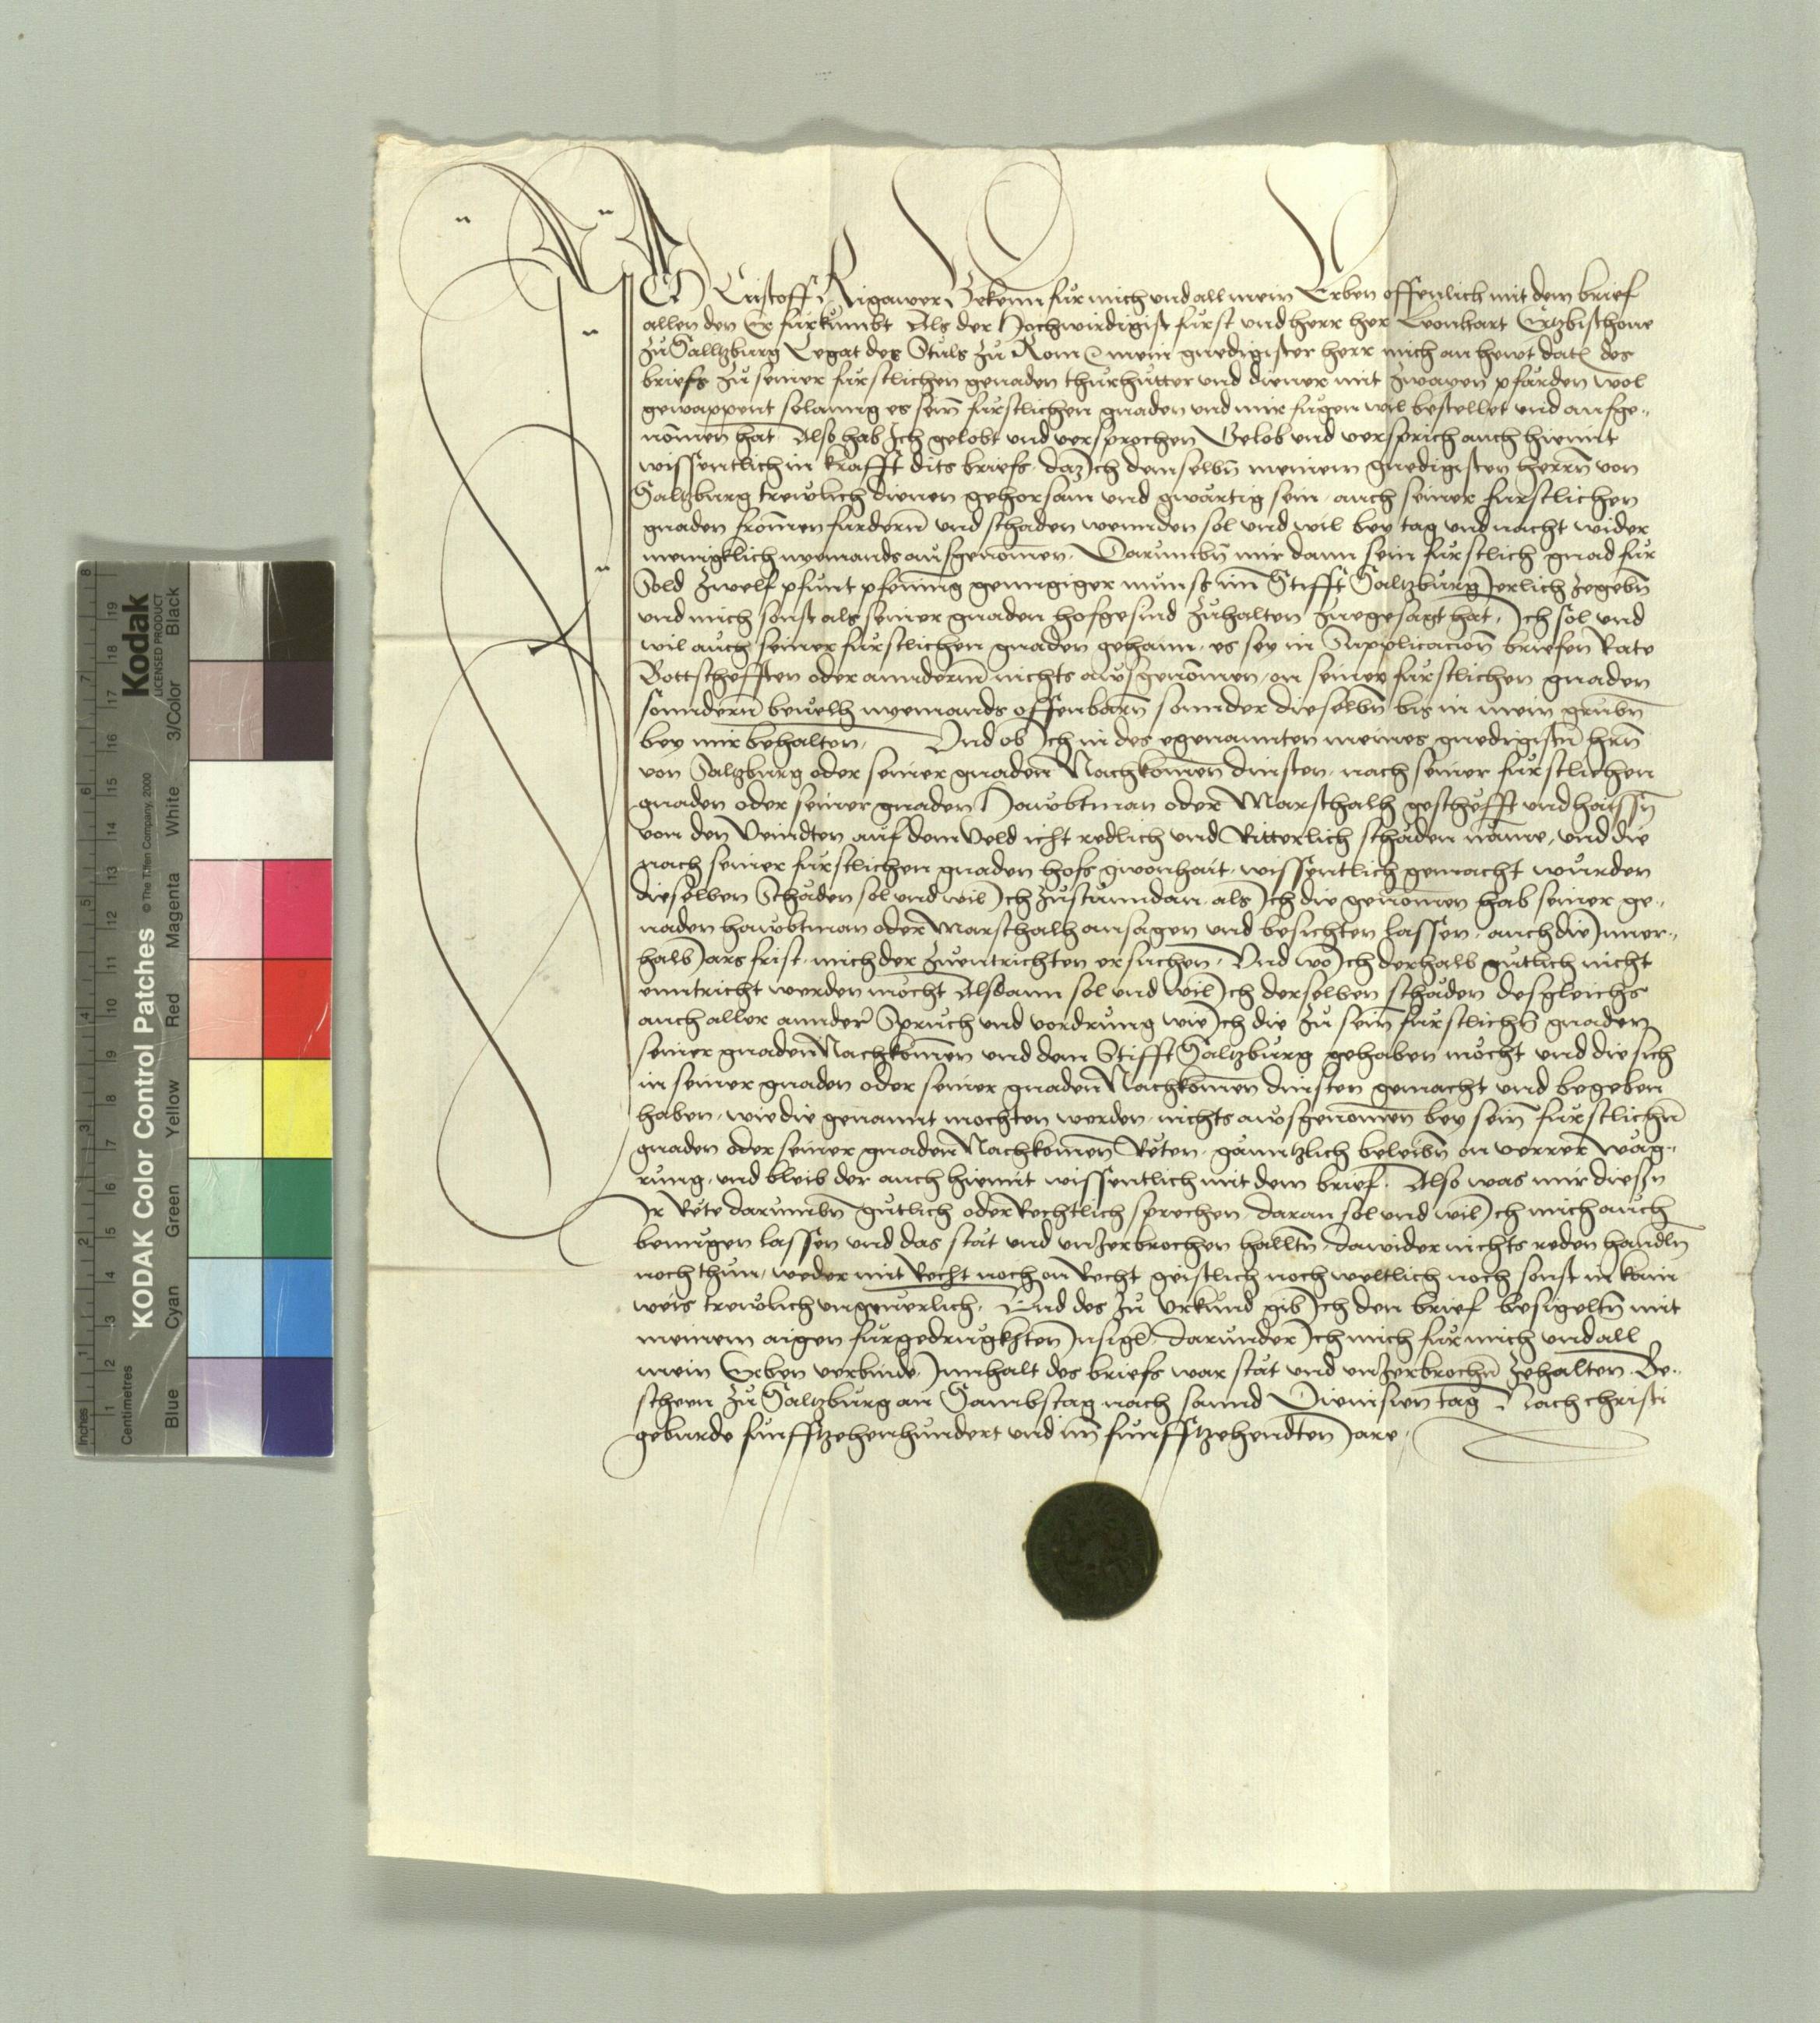 ICH Cristoff Rigawer Bekenn fur mich und all mein Erben offenlich mit dem brief
allen den Er furkumbt Als der Hochwirdigist furst und herr her Leonhart Ertzbischove
zu Salltzburg Legat des Stuls zu Rom mein gnedigister herr mich an hewt dat des
briefs zu seiner furstlichen genaden thurhutter und diener mit zwayen pfärden wol
gewappent solanng es sein furstlichen gnaden und mir fugen wil bestellet und aufge„
nomen hat. Also hab Ich gelobt und versprochen Gelob und versprich auch hiemit
wissentlich in krafft dits briefs. daz Ich demselbn meinem gnedigisten herrn von
Saltzburg trewlich dienen gehorsam und gwärtig sein. auch seiner furstlichen
gnaden fromen furdern und schaden wennden sol und wil bey tag und nacht wider
menigklich nyemands ausgenomen. Darumbn mir dann sein furstlich gnad fur
Sold zwelf pfunt pfening genngiger munss im Stifft Saltzburg Jerlich zegebn
und mich sonst als seiner gnaden hofgesind zuhalten zuegesagt hat. Ich sol und
wil auch seiner furstlichen gnaden gehaim. es sey in Supplicacion briefen Rate
Bottschefften oder anndern nichts ausgenomen. on seiner furstlichen gnaden
sonndern bevelh nyemands offenbarn sonnder dieselbn bis in mein grubn
bey mir behalten. Und ob Ich in des egenannten meines gnedigistn hrn
von Saltzburg oder seiner gnaden Nachkomen dinsten. nach seiner furstlichen
gnaden oder seiner gnaden Hawbtman oder Marschalh gescheff und haissn
von den Veindten auf dem Veld icht redlich und Ritterlich schäden näme. und die
nach seiner furstlichen gnaden hofs gwonhait. wissentlich gemacht wurden
dieselben Schäden sol und wil Ich zustunndan. als Ich die genomen hab seiner ge„
naden hawbtman oder Marschalh ansagen und besichten lassen. auch die Inner„
halb Jars frist. mich der zuentrichten ersuchen. Und wo Ich derhalb gutlich nicht
enntricht werden möcht Alsdann sol und wil Ich derselben schäden desgleichs
auch aller annder Spruch und vordrung wie Ich die zu sein furstlichn gnaden
seiner gnaden Nachkomen und dem Stifft Saltzburg gehaben möcht und die sich
in seiner gnaden oder seiner gnaden Nachkomen dinsten gemacht und begeben
haben. wie die genannt mochten werden. nichts ausgenomen bey sein furstlichn
gnaden oder seiner gnaden Nachkomen Reten. gänntzlich beleibn on verrer wäg„
rung. und bleib der auch hiemit wissentlich mit dem brief. Also was mir diesn
Ir Rete darumbn gutlich oder Rechtlich sprechen. daran sol und wil Ich mich auch
benugen lassen und das stät und unzerbrochen halltn. dawider nichts reden handln
noch thun. weder mit Recht noch on Recht geistlich noch weltlich noch sonst in kain
weis trewlich ungeverlich. Und des zu Urkund gib Ich den brief besigeltn mit
meinem aigen furgedrugkhten Insigl. darunder Ich mich fur mich und all
mein Erben verbinde. Innhalt des briefs war stät und unzerbrochn zehalten. Be„
scheen zu Saltzburg an Sambstag nach sannd Dienisien tag. Nach christi
geburde funfftzehenhundert und im funfftzehendten Jare.
KODAK Color Control Patches
© The Tiffen Company, 2000
Kodak
LICENSED PRODUCT
Inches
Centimetres
Blue Cyan Green Yellow Red Magenta White 3/Color Black